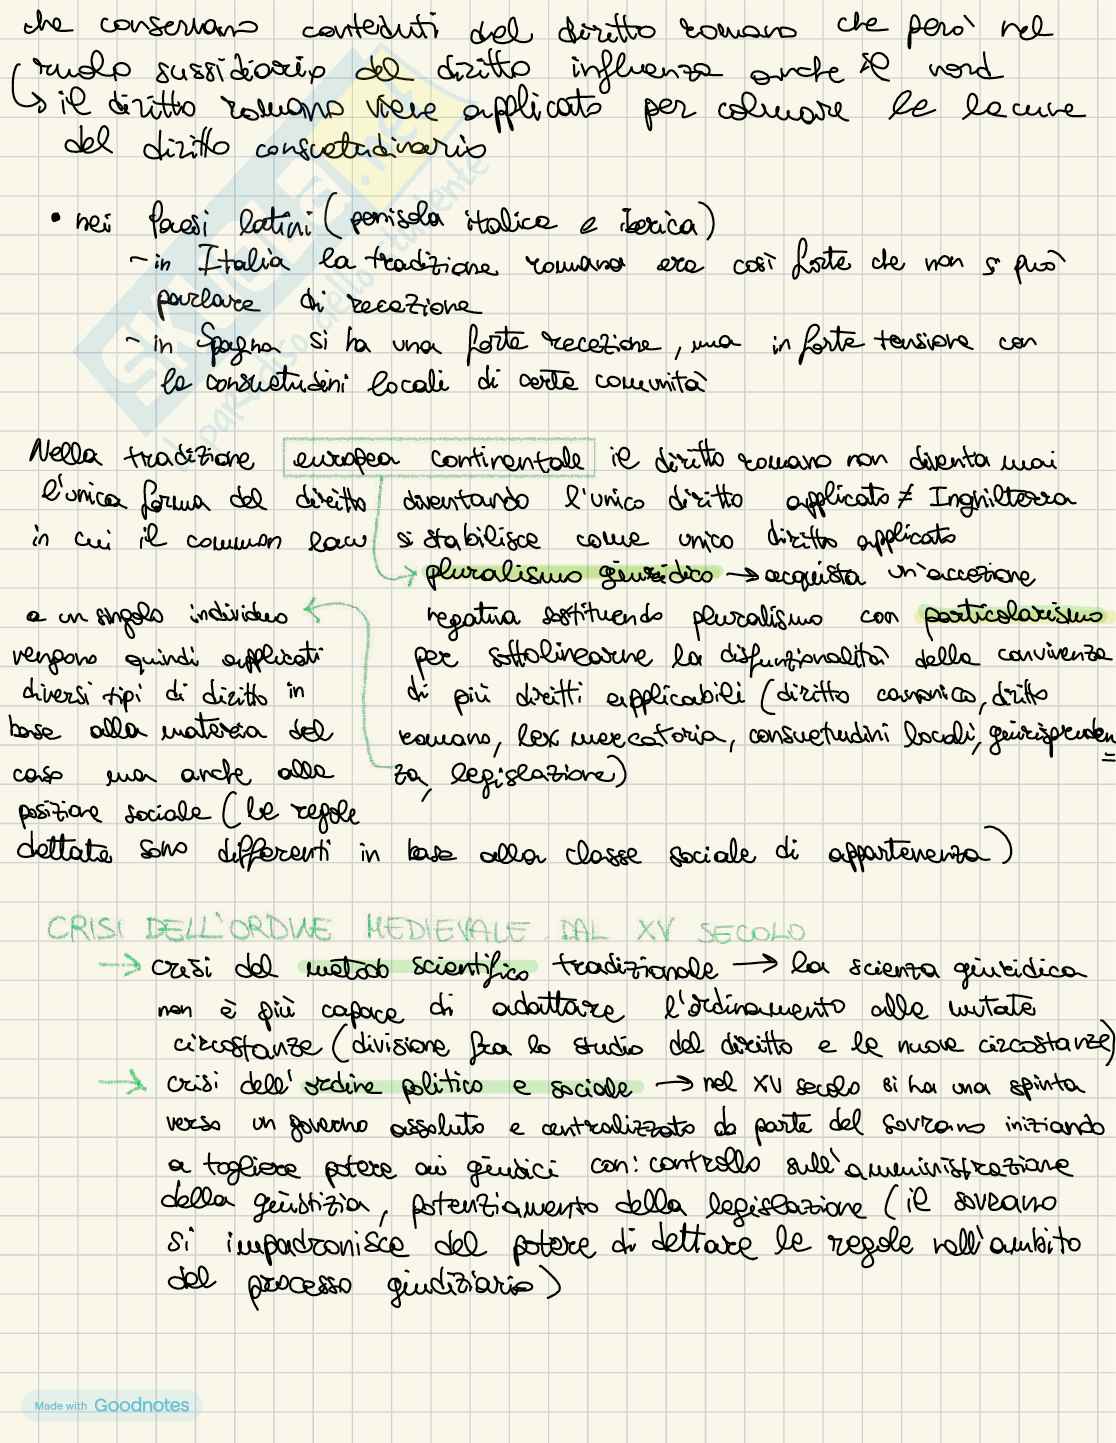 che conservano contenuti del diritto romano che però nel
ruolo sussidiario del diritto influenza anche il nord
↳ il diritto romano viene applicato per colmare le lacune
del diritto consuetudinario
• nei Paesi latini (penisola italica e iberica)
- in Italia la tradizione romana era così forte che non si può
parlare di recezione
- in Spagna si ha una forte recezione, ma in forte tensione con
le consuetudini locali di certe comunità
Nella tradizione europea continentale il diritto romano non diventa mai
l'unica forma del diritto diventando l'unico diritto applicato ≠ Inghilterra
in cui il common law si stabilisce come unico diritto applicato
→ pluralismo giuridico → acquista un'accezione
negativa sostituendo pluralismo con particolarismo
per sottolinearne la disfunzionalità della convivenza
di più diritti applicabili (diritto canonico, diritto
romano, lex mercatoria, consuetudini locali, giurispruden=
za, legislazione)
a un singolo individuo
vengono quindi applicati
diversi tipi di diritto in
base alla materia del
caso ma anche alla
posizione sociale (le regole
dettate sono differenti in base alla classe sociale di appartenenza)
CRISI DELL'ORDINE MEDIEVALE DAL XV SECOLO
→ crisi del metodo scientifico tradizionale → la scienza giuridica
non è più capace di adattare l'ordinamento alle mutate
circostanze (divisione fra lo studio del diritto e le nuove circostanze)
→ crisi dell'ordine politico e sociale → nel XV secolo si ha una spinta
verso un governo assoluto e centralizzato da parte del sovrano iniziando
a togliere potere ai giudici con: controllo sull'amministrazione
della giustizia, potenziamento della legislazione (il sovrano
si impadronisce del potere di dettare le regole nell'ambito
del processo giudiziario)
Made with Goodnotes